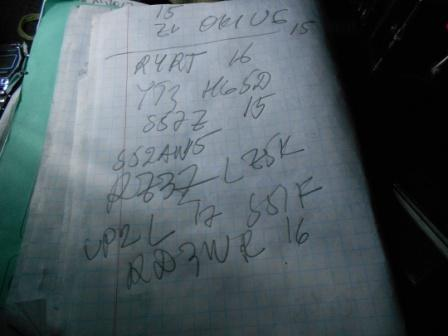 15
21 OK1UG 15
R4RT 16
YT3 H65D
S57Z 15
S52AW5
RZ3Z LZ5K
UP2L 17 S51F
RD3WR 16